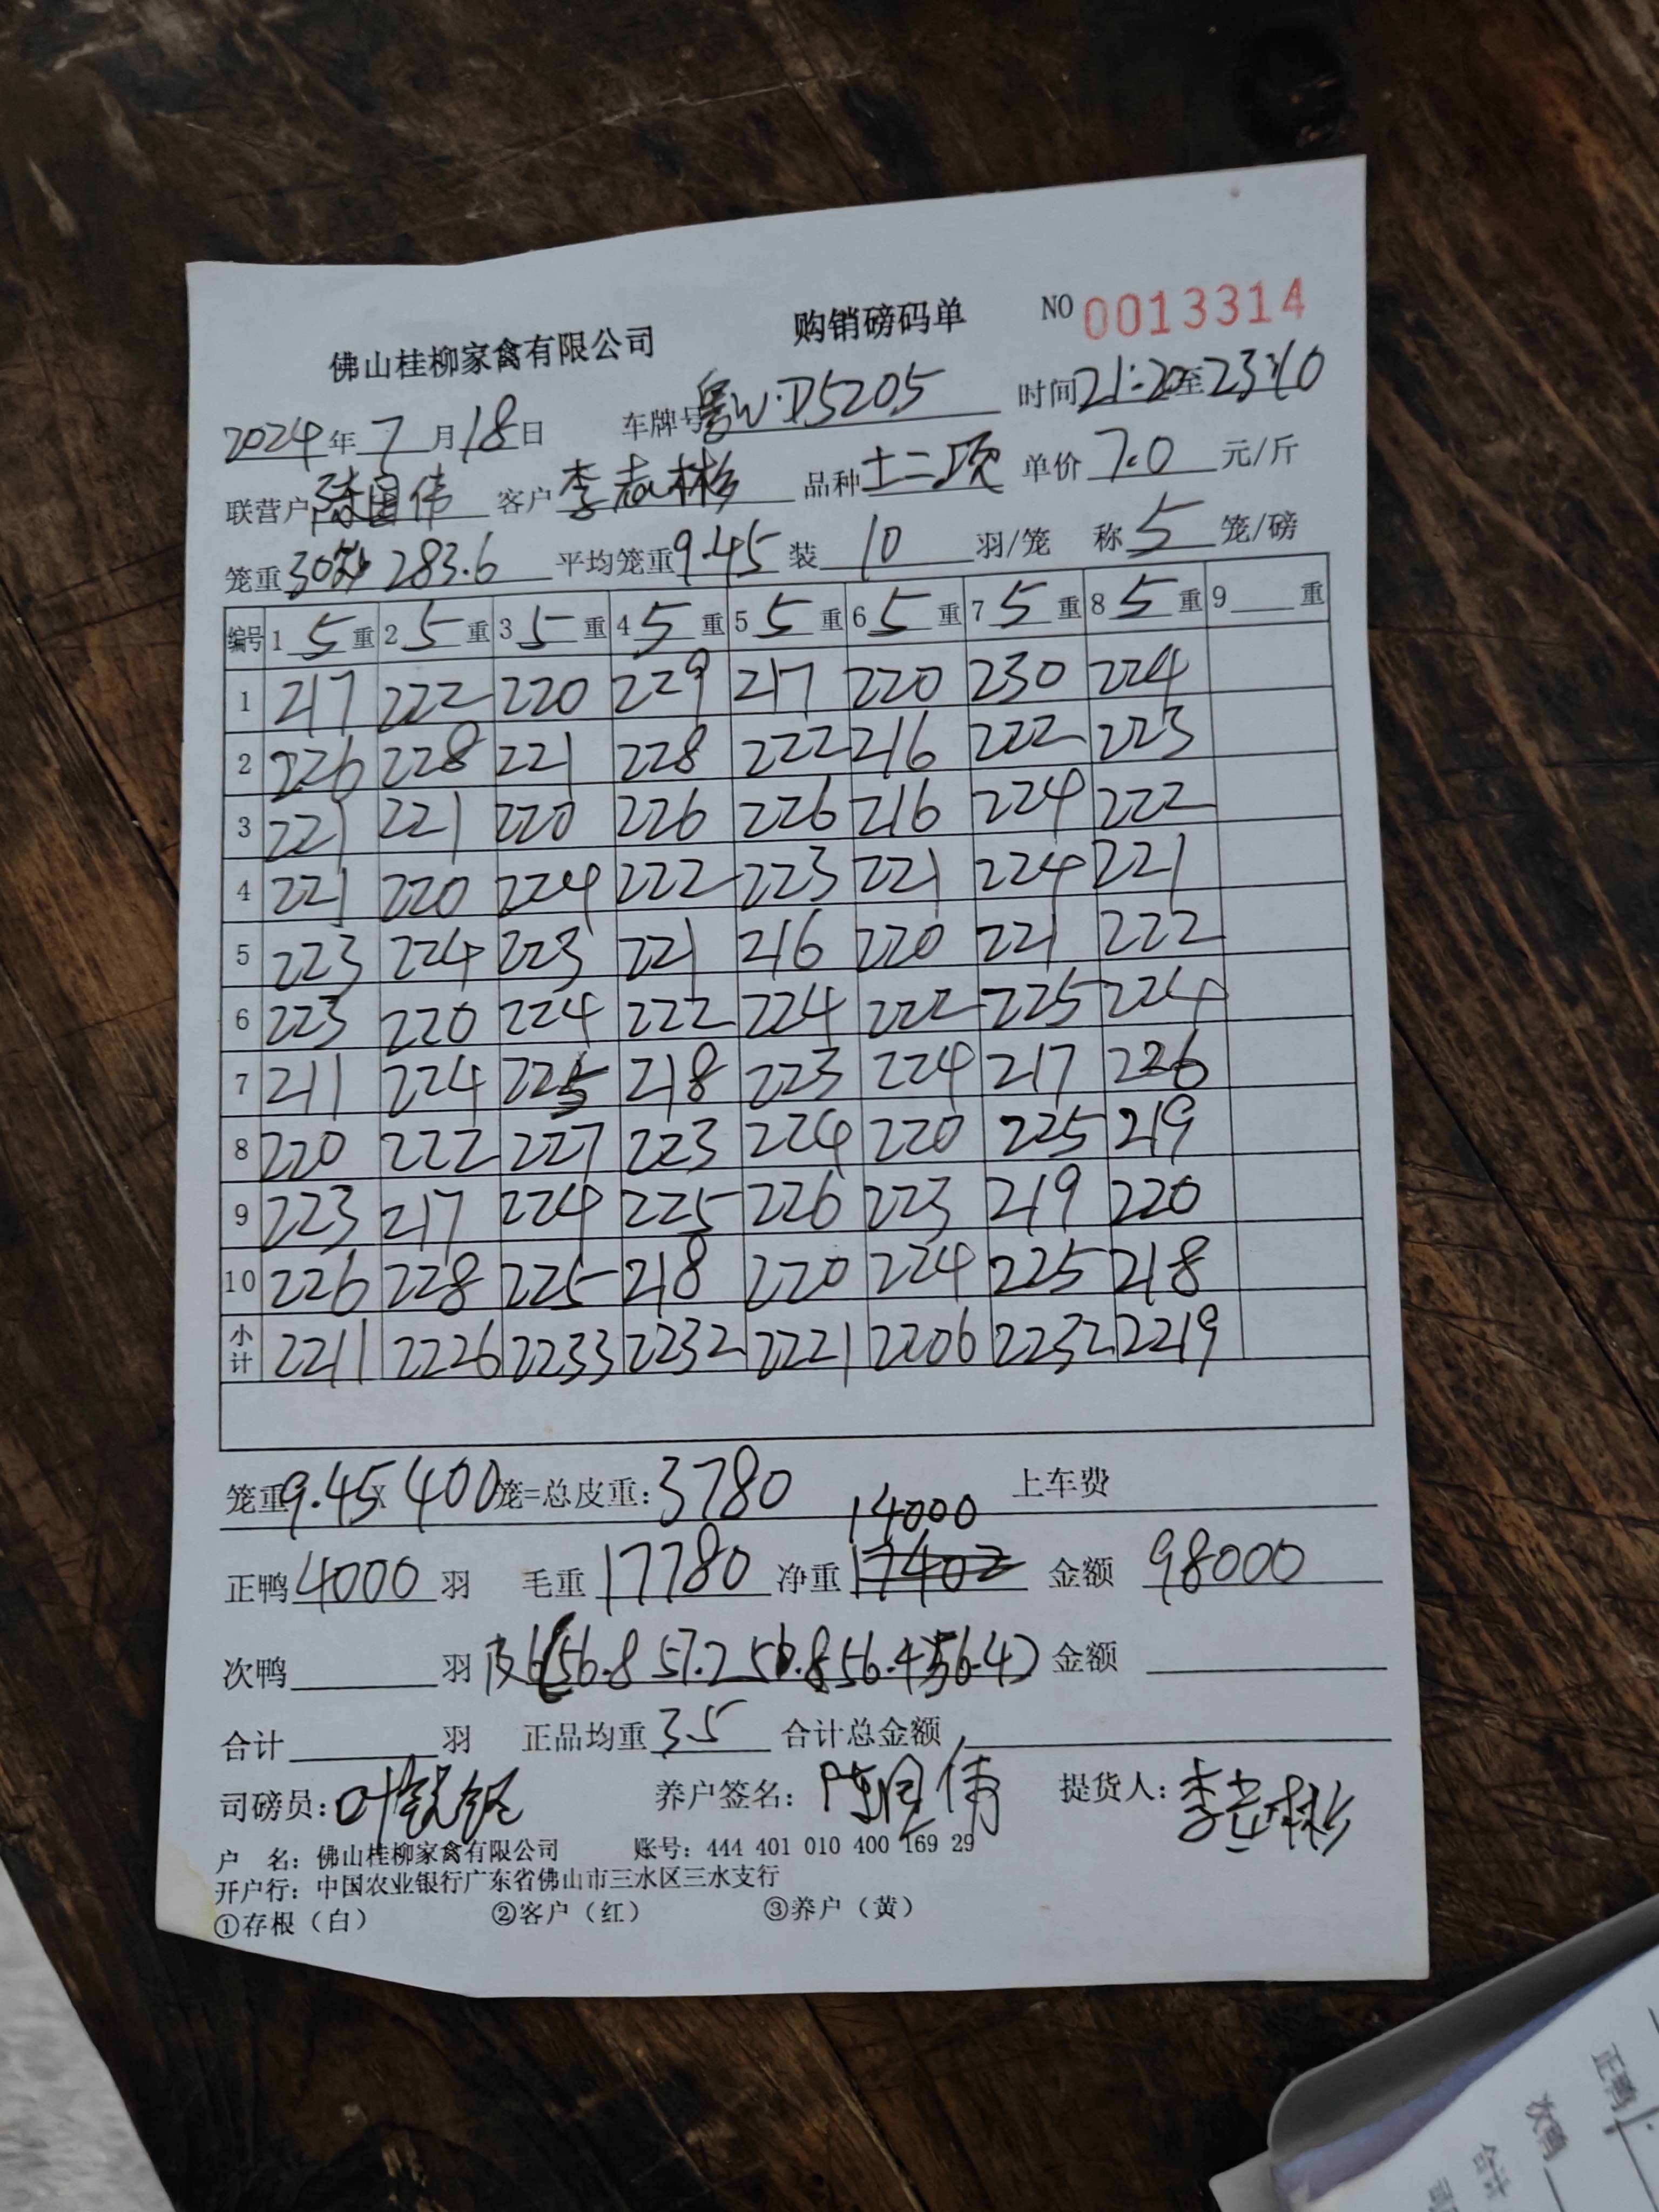 佛山桂柳家禽有限公司 购销磅码单 NO 0013314
2024年7月18日 车牌号粤W·D5205 时间21:20至23:10
联营户陈国伟 客户李志彬 品种土二项 单价7.0元/斤
笼重30 283.6 平均笼重9.45 装10羽/笼 称5笼/磅
编号 1 5重 2 5重 3 5重 4 5重 5 5重 6 5重 7 5重 8 5重 9 重
1 217 222 220 229 217 220 230 224
2 226 228 221 228 222 216 222 223
3 221 221 220 226 226 216 224 222
4 221 220 224 222 223 221 224 221
5 223 224 223 221 216 220 221 222
6 223 220 224 222 224 222 225 224
7 211 224 225 218 223 224 217 226
8 220 222 227 223 224 220 225 219
9 223 217 224 225 226 223 219 220
10 226 228 225 218 220 224 225 218
小计 2211 2226 2233 2232 2221 2206 2232 2219
笼重9.45×400笼=总皮重:3780 上车费
14000
正鸭4000羽 毛重17780 净重17402 金额98000
次鸭 羽 皮6(56.8 57.2 56.8 56.4 56.4) 金额
合计 羽 正品均重3.5 合计总金额
司磅员:叶 养户签名:陈国伟 提货人:李志彬
户 名:佛山桂柳家禽有限公司 账号:444 401 010 400 169 29
开户行:中国农业银行广东省佛山市三水区三水支行
①存根(白) ②客户(红) ③养户(黄)
正鸭
次鸭
合计